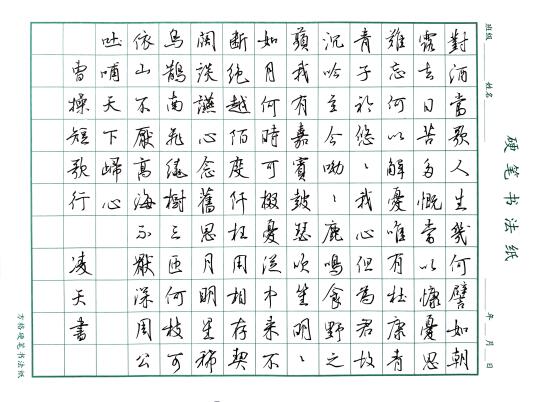 硬笔书法纸
班级 姓名 年 月 日
對酒當歌人生幾何譬如朝
露去日苦多慨當以慷憂思
難忘何以解憂唯有杜康青
青子衿悠丶我心但為君故
沉吟至今呦丶鹿鳴食野之
蘋我有嘉賓鼓瑟吹笙明丶
如月何時可掇憂從中來不
斷絕越陌度阡枉用相存契
闊談讌心念舊恩月明星稀
烏鵲南飛繞樹三匝何枝可
依山不厭高海不厭深周公
吐哺天下歸心
曹操短歌行 凌天書
方格硬笔书法纸